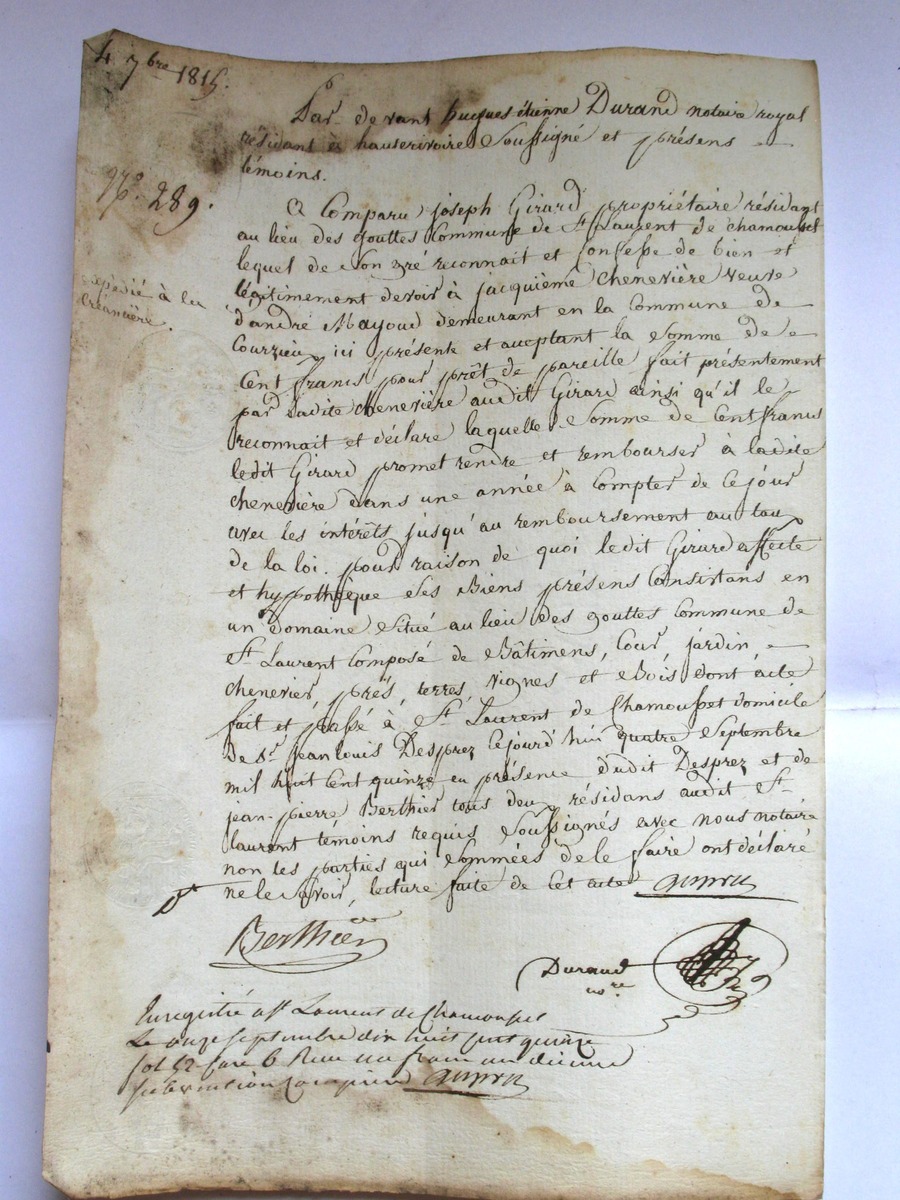 4 7bre 1815.
Par devant hugues étienne Durand notaire royal
résidant à hauterivoire Soussigné et présens
témoins.
N.° 289.
A Comparu joseph Girard propriétaire résidant
au lieu des gouttes Commune de St Laurent de chamousset
lequel de Son gré reconnait et Confesse de bien et
légitimement devoir à jacquième chenevière veuve
expédié à la
Créancière.
d'andré Mayoud demeurant en la Commune de
Courzieu, ici présente et aceptant la Somme de
Cent francs pour prêt de pareille fait présentement
par ladite chenevière audit Girard ainsi qu'il le
reconnait et déclare laquelle Somme de Cent francs
ledit Girard promet rendre et rembourser à ladite
chenevière dans une année à Compter de Ce jour
avec les intérêts jusqu'au remboursement au taux
de la loi. pour raison de quoi ledit Girard affecte
et hypothèque Ses Biens présens Consistans en
un domaine Situé au lieu des gouttes Commune de
St Laurent Composé de Bâtimens, Cour, jardin,
chenevier, prés, terres, vignes et Bois dont acte
fait et passé à St Laurent de Chamousset domicile
de Sr jean louis Desprez Cejourd'hui quatre Septembre
mil huit Cent quinze en présence dudit Desprez et de
jean-pierre Berthier tous deux résidans audit St
laurent témoins requis Soussignés avec nous notaire
non les parties qui Sommées de le faire ont déclaré
ne le Savoir, lecture faite de Cet acte
Berthier
Durand
nore
Enregistré a St Laurent de Chamousset
Le onze Septembre dix huit cent quinze
fol 52 Case 6 Reçu un franc un décime
Subvention Comprise